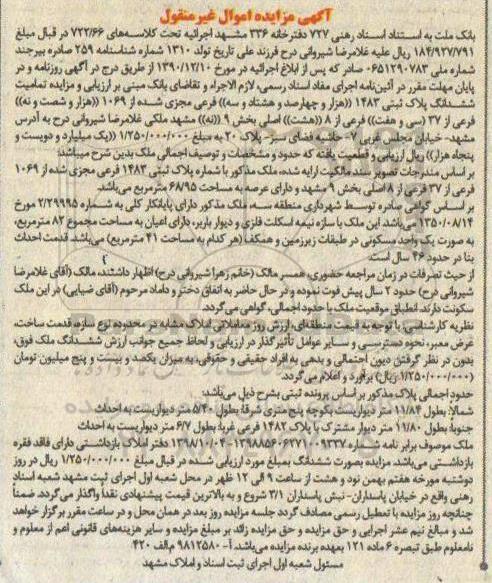 آگهی مزایده اموال غیرمنقول
بانک ملت به استناد اسناد رهنی ۷۲۷ دفترخانه ۳۳۶ مشهد اجرائیه تحت کلاسه‌های ۷۲۲/۶۶ در قبال مبلغ
۱۸۴/۹۲۷/۷۹۱ ریال علیه غلامرضا شیروانی درح فرزند علی تاریخ تولد ۱۳۱۰ شماره شناسنامه ۲۵۹ صادره بیرجند
شماره ملی ۰۶۵۱۲۹۰۷۸۳ صادر که پس از ابلاغ اجرائیه در مورخ ۱۳۹۰/۱۲/۱۰ از طریق درج در آگهی روزنامه و در
پایان مهلت مقرر در آئین‌نامه اجرای مفاد اسناد رسمی، لازم الاجراء و تقاضای بانک مبنی بر ارزیابی و مزایده تمامیت
ششدانگ پلاک ثبتی ۱۴۸۳ ((هزار و چهارصد و هشتاد و سه)) فرعی مجزی شده از ۱۰۶۹ ((هزار و شصت و نه))
فرعی از ۳۷ (سی و هفت)) فرعی از ۸ ((هشت)) اصلی بخش ۹ ((نه)) مشهد ملکی غلامرضا شیروانی درح به آدرس
مشهد- خیابان مجلس غربی ۷- حاشیه فضای سبز- پلاک ۲۰ به مبلغ ۱/۲۵۰/۰۰۰/۰۰۰ ((یک میلیارد و دویست و
پنجاه هزار)) ریال ارزیابی و قطعیت یافته که حدود و مشخصات و توصیف اجمالی ملک بدین شرح میباشد:
بر اساس مندرجات تصویر سند مالکیت ارایه شده، ملک مذکور با شماره پلاک ثبتی ۱۴۸۳ فرعی مجزی شده از ۱۰۶۹
فرعی از ۳۷ فرعی از ۸ اصلی بخش ۹ مشهد و دارای عرصه به مساحت ۶۸/۹۵ مترمربع می‌باشد.
بر اساس گواهی صادره توسط شهرداری منطقه سه، ملک مذکور دارای پایانکار کلی به شماره ۲/۲۹۹۹۵ مورخ
۱۳۵۰/۰۸/۱۴ می‌باشد. این ملک با سازه نیمه اسکلت فلزی و دیوار باربر، دارای اعیان به مساحت مجموع ۸۲ مترمربع،
به صورت یک واحد مسکونی در طبقات زیرزمین و همکف (هر کدام به مساحت ۴۱ مترمربع) می‌باشد. قدمت احداث
بنا در حدود ۴۶ سال است.
از حیث تصرفات در زمان مراجعه حضوری، همسر مالک (خانم زهرا شیروانی درح) اظهار داشتند، مالک (آقای غلامرضا
شیروانی درح) حدود ۲ سال پیش فوت نموده و در حال حاضر به اتفاق دختر و داماد مرحوم (آقای ضیایی) در این ملک
سکونت دارند. انطباق موقعیت ملک با حدود اجمالی، گواهی می‌گردد.
نظریه کارشناسی: با توجه به قیمت منطقه‌ای، ارزش روز معاملاتی املاک مشابه در محدوده نوع سازه، قدمت ساخت،
عرض معبر، نحوه دسترسی و سایر عوامل تأثیرگذار در ارزیابی و لحاظ جمیع جوانب ارزش ششدانگ ملک فوق،
بدون در نظر گرفتن دیون احتمالی و بدهی به افراد حقیقی و حقوقی، به میزان یکصد و بیست و پنج میلیون تومان
(۱/۲۵۰/۰۰۰/۰۰۰ ریال) برآورد و اعلام می‌گردد.
حدود اجمالی پلاک مذکور بر اساس پرونده ثبتی بشرح ذیل می‌باشد:
شمالا: بطول ۱۱/۸۴ متر دیواریست بکوچه پنج متری شرقا: بطول ۵/۴۰ متر دیواریست به احداث
جنوبا: بطول ۱۱/۸۰ متر دیوار مشترک با پلاک ۱۴۸۲ فرعی غربا: بطول ۶/۷ متر دیواریست به احداث
ملک موصوف برابر نامه شماره ۱۳۹۸۸۵۶۰۶۲۷۱۰۰۹۳۳۷-۱۳۹۸/۱۰/۰۴ دفتر املاک بازداشتی دارای فاقد فقره
بازداشتی می‌باشد. مزایده بصورت ششدانگ بمبلغ مورد ارزیابی شده در قبال مبلغ ۱/۲۵۰/۰۰۰/۰۰۰ ریال در روز
دوشنبه مورخه هفتم بهمن نود و هشت از ساعت ۹ الی ۱۲ ظهر در محل شعبه اول اجرای ثبت مشهد شعبه اسناد
رهنی واقع در خیابان پاسداران- نبش پاسداران ۳/۱ شروع و به بالاترین قیمت پیشنهادی نقدا واگذار می‌گردد. ضمناً
چنانچه روز مزایده با تعطیل رسمی مصادف گردد جلسه مزایده روز بعد در همان محل و در ساعت مقرر برگزار خواهد
شد و مبالغ نیم عشر اجرایی و حق مزایده و حق مزایده زائد بر مبلغ مزایده و سایر هزینه‌های قانونی اعم از معلوم و
نامعلوم طبق تبصره ۶ ماده ۱۲۱ بعهده برنده مزایده می‌باشد. آ- ۹۸۱۲۵۸۰ م.الف ۴۲۰
مسئول شعبه اول اجرای ثبت اسناد و املاک مشهد